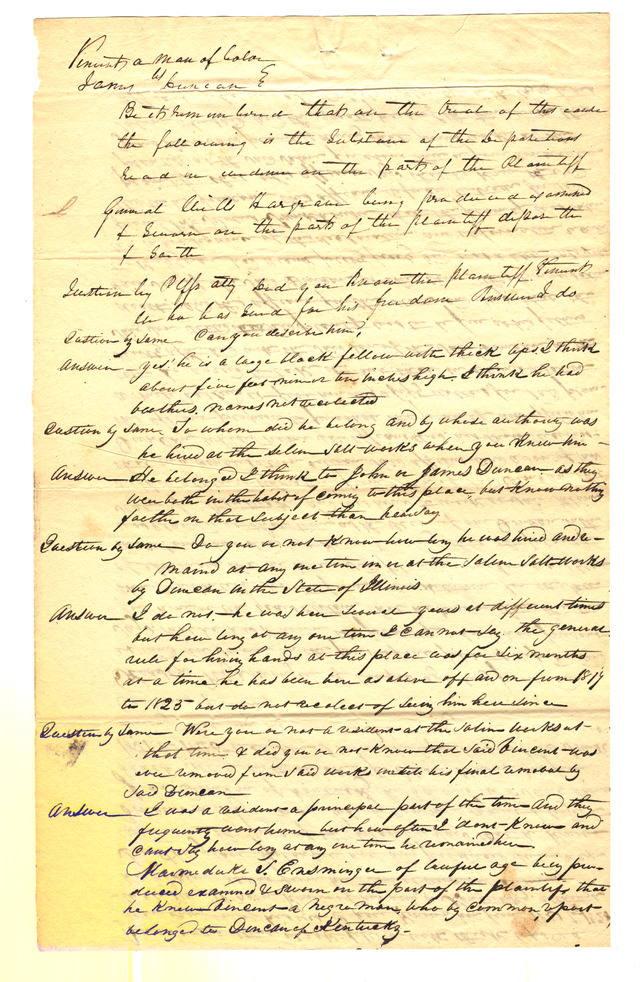 Vincent a man of Color
vs
James Duncan
Be it remembered that on the trial of this cause
the following is the Substance of the depositions
read in evidence on the part of the Plaintiff
General Hargrave being produced examined
& Sworn on the part of the plaintiff deposeth
& Saith
Question by Plffs atty Did you know the plaintiff Vincent
who has Sued for his freedom Answer I do
Question by Same Can you describe him?
Answer - yes, he is a large black fellow with thick lips, I think
about five feet nine or ten inches high. I think he had
brothers, names not recollected
Question by Same To whom did he belong and by whose authority was
he hired at the Saline Salt works when you Knew him -
Answer He belonged I think to John or James Duncan as they
were both in the habit of coming to this place, but Know nothing
farther on that Subject than hearsay
Question by Same Do you or not Know how long he was hired and re-
maind at any one time in or at the Saline Salt-works
by Duncan in the State of Illinois
Answer I do not - he was here several years at different times
but how long at any one time I can not say. the general
rule for hiring hands at this place was for Six months
at a time, he has been here as above off and on from 1817
to 1825 but do not recolect of seeing him here since
Question by Same Were you or not a resident at the Saline works at
that time & did you or not Know that Said Vincent was
ever removed from Said works untill his final removal by
Said Duncan
Answer I was a resident a principal part of the time And they
frequently went home but how often I dont Know and
cant say how long at any one time he remained here
Marmeduke S Ensminger of lawful age being pro-
duced examined & sworn on the part of the plaintiff that
he Knew Vincent a negro man, who by common report
belonged to Duncan of Kentucky -